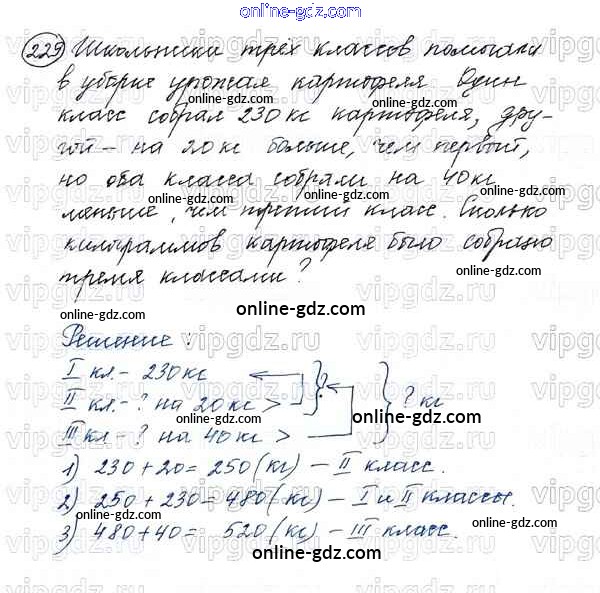 online-gdz.com
229 Школьники трёх классов помогали
в уборке урожая картофеля Один
online-gdz.com
класс собрал 230 кс картофеля, дру-
гой - на 20 кс больше, чем первый,
online-gdz.com
но оба класса собрали на 40 кс
меньше, чем третий класс. Сколько
online-gdz.com
килограммов картофеля было собрано
тремя классами?
online-gdz.com
online-gdz.com
Решение:
I кл. - 230 кс
II кл. - ? на 20 кс > ? ? кс
III кл - ? на 40 кс >
online-gdz.com
online-gdz.com
1) 230 + 20 = 250 (кс) - II класс.
2) 250 + 230 = 480 (кс) - I и II классы.
online-gdz.com
3) 480 + 40 = 520 (кс) - III класс.
online-gdz.com
online-gdz.com
vipgdz.ru